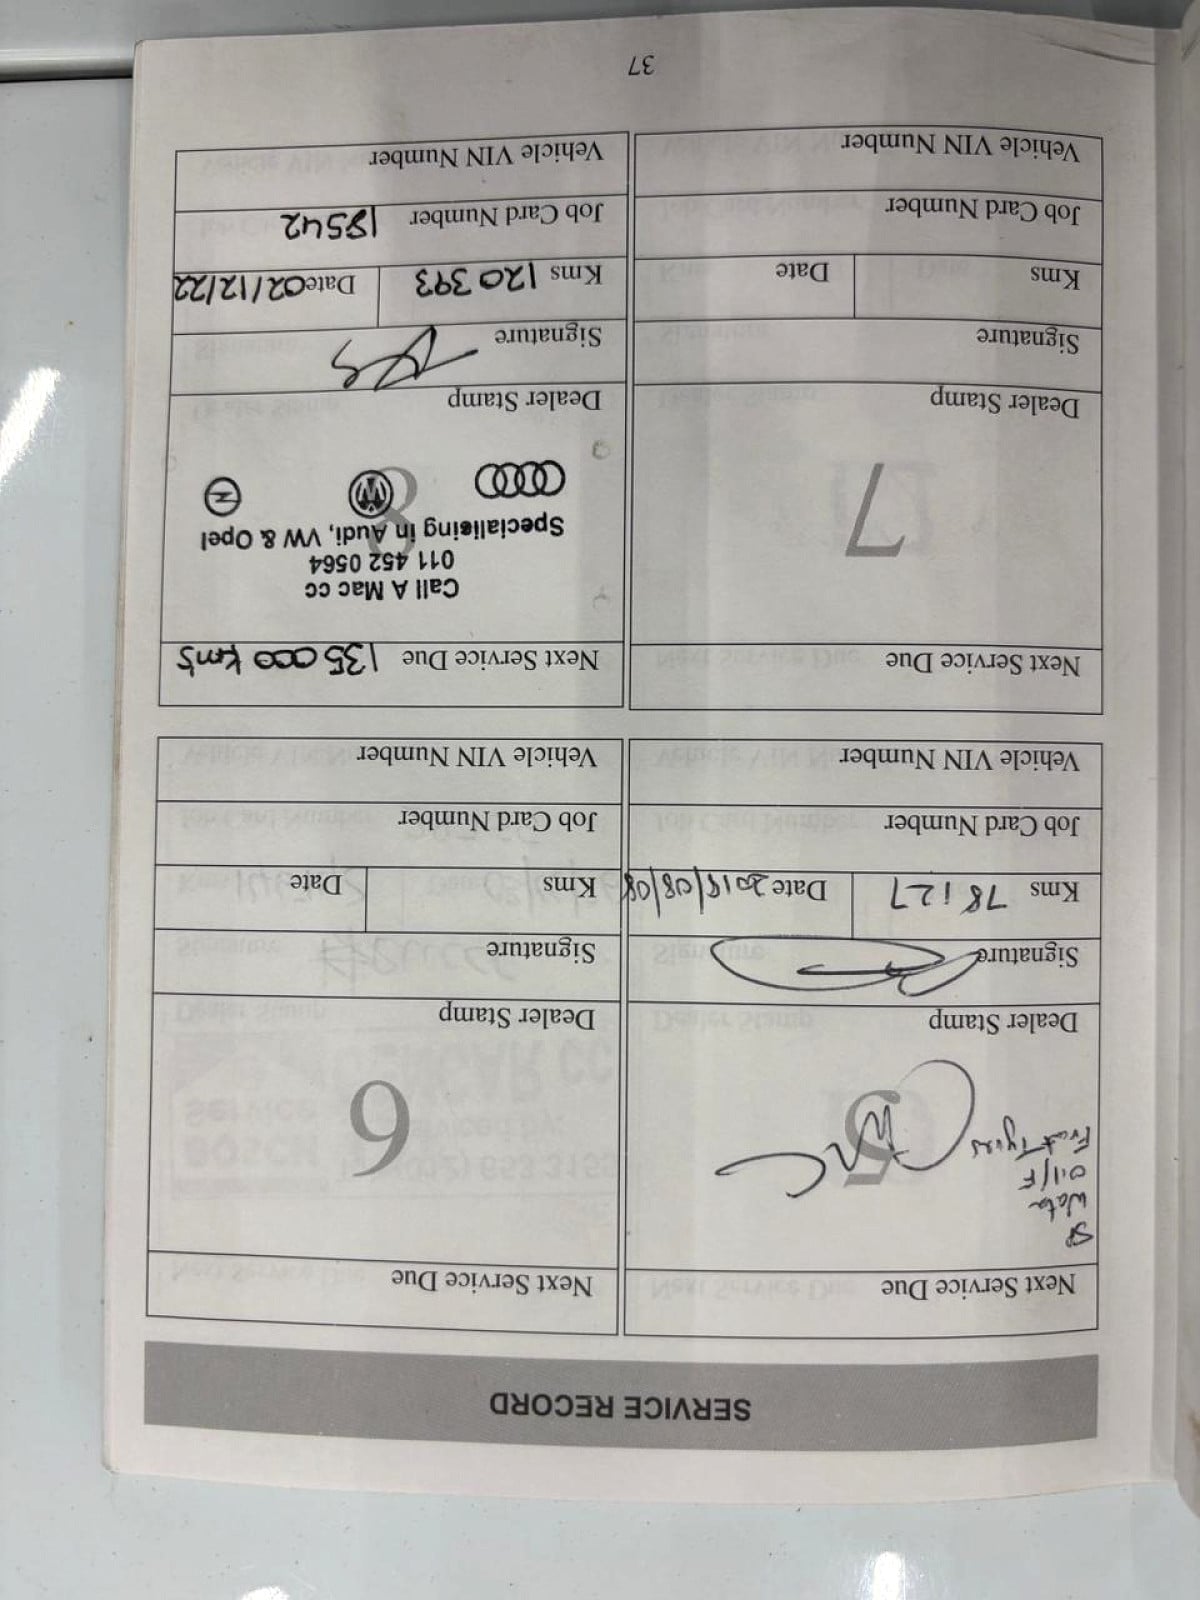 SERVICE RECORD
Next Service Due
SP
Wata
Oil/F
Front Tyres
5
Dealer Stamp
Signature
Kms 78127 Date 2018/08/08
Job Card Number
Vehicle VIN Number
Next Service Due
6
Dealer Stamp
Signature
Kms Date
Job Card Number
Vehicle VIN Number
Next Service Due
7
Dealer Stamp
Signature
Kms Date
Job Card Number
Vehicle VIN Number
Next Service Due 135000 km's
8
Call A Mac cc
011 452 0564
Specialising in Audi, VW & Opel
Dealer Stamp
Signature
Kms 120393 Date 02/12/22
Job Card Number 18542
Vehicle VIN Number
37